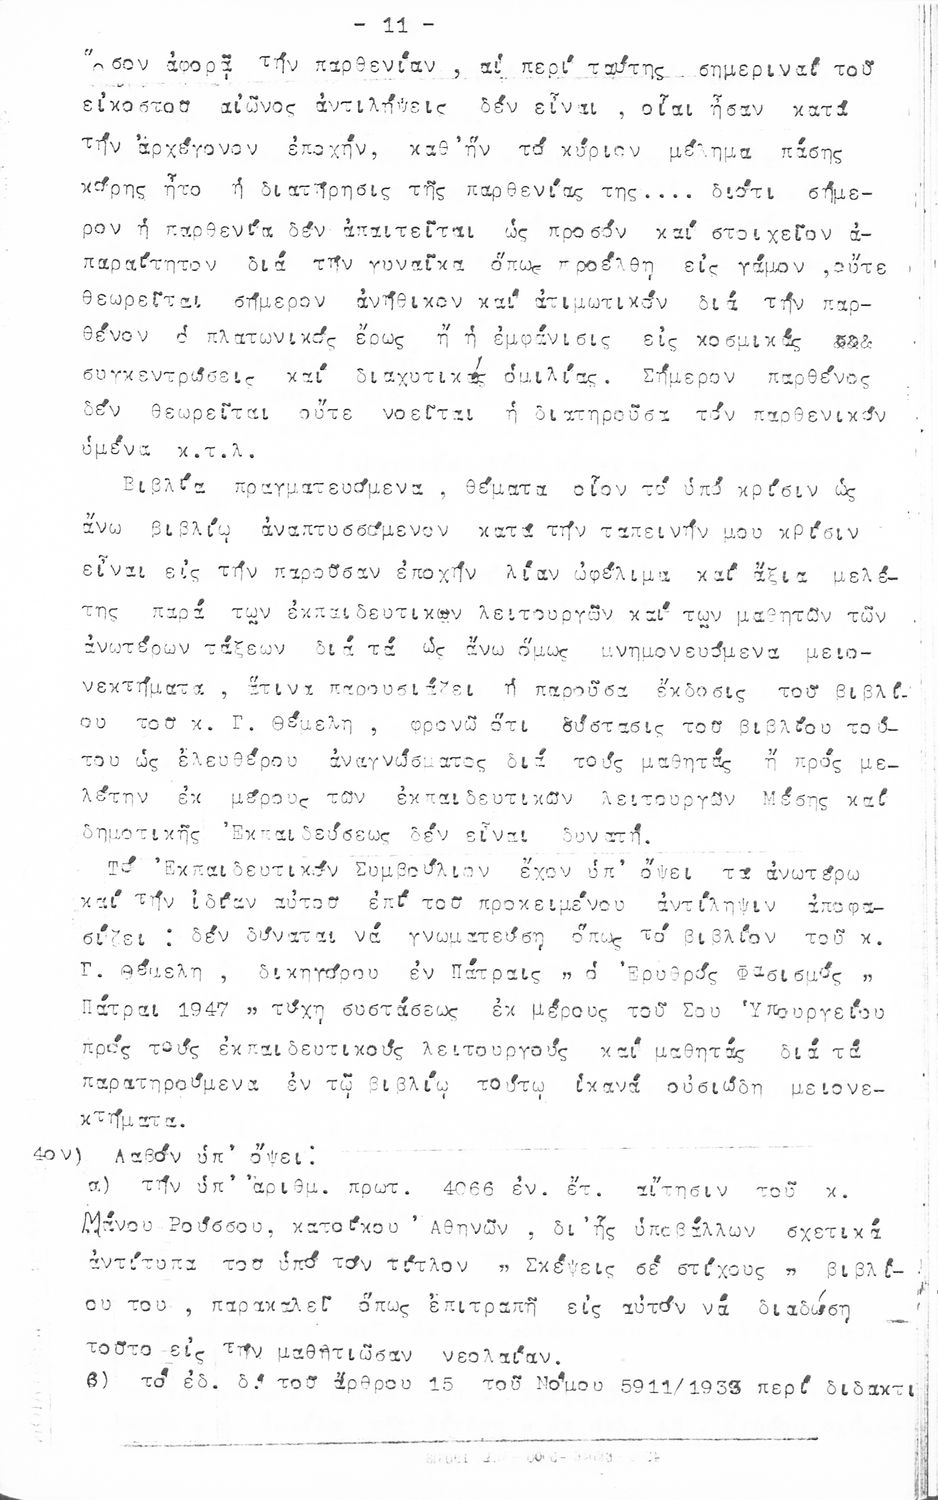 - 11 -
Ὅσον ἀφορᾷ τήν παρθενίαν , αἱ περί ταύτης σημεριναί τοῦ
εἰκοστοῦ αἰῶνος ἀντιλήψεις δέν εἶναι , οἷαι ἦσαν κατά
τήν ἀρχέγονον ἐποχήν, καθ'ἥν τό κύριον μέλημα πάσης
κόρης ἦτο ἡ διατήρησις τῆς παρθενίας της.... διότι σήμε-
ρον ἡ παρθενία δέν ἀπαιτεῖται ὡς προσόν καί στοιχεῖον ἀ-
παραίτητον διά τήν γυναῖκα ὅπως προέλθη εἰς γάμον ,οὔτε
θεωρεῖται σήμερον ἀνήθικον καί ἀτιμωτικόν διά τήν παρ-
θένον ὁ πλατωνικός ἔρως ἤ ἡ ἐμφάνισις εἰς κοσμικάς
συγκεντρώσεις καί διαχυτικάς ὁμιλίας. Σήμερον παρθένος
δέν θεωρεῖται οὔτε νοεῖται ἡ διατηροῦσα τόν παρθενικόν
ὑμένα κ.τ.λ.
Βιβλία πραγματευόμενα , θέματα οἷον τό ὑπό κρίσιν ὡς
ἄνω βιβλίῳ ἀναπτυσσόμενον κατά τήν ταπεινήν μου κρίσιν
εἶναι εἰς τήν παροῦσαν ἐποχήν λίαν ὠφέλιμα καί ἄξια μελέ-
της παρά των ἐκπαιδευτικων λειτουργῶν καί των μαθητῶν τῶν
ἀνωτέρων τάξεων διά τά ὡς ἄνω ὅμως μνημονευόμενα μειο-
νεκτήματα , ἅτινα παρουσιάζει ἡ παροῦσα ἔκδοσις τοῦ βιβλί-
ου τοῦ κ. Γ. Θέμελη , φρονῶ ὅτι σύστασις τοῦ βιβλίου τού-
του ὡς ἐλευθέρου ἀναγνώσματος διά τούς μαθητάς ἤ πρός με-
λέτην ἐκ μέρους τῶν ἐκπαιδευτικῶν λειτουργῶν Μέσης καί
δημοτικῆς Ἐκπαιδεύσεως δέν εἶναι δυνατή.
Τό Ἐκπαιδευτικόν Συμβούλιον ἔχον ὑπ' ὄψει τα ἀνωτέρω
καί τήν ἰδίαν αὐτοῦ ἐπί τοῦ προκειμένου ἀντίληψιν ἀποφα-
σίζει : δέν δύναται νά γνωματεύση ὅπως τό βιβλίον τοῦ κ.
Γ. Θέμελη , δικηγόρου ἐν Πάτραις " ὁ Ἐρυθρός Φασισμός "
Πάτραι 1947 " τύχη συστάσεως ἐκ μέρους τοῦ Σου Ὑπουργείου
πρός τούς ἐκπαιδευτικούς λειτουργούς καί μαθητάς διά τά
παρατηρούμενα ἐν τῷ βιβλίῳ τούτῳ ἱκανά οὐσιώδη μειονε-
κτήματα.
4ον) Λαβόν ὑπ' ὄψει:
α) τήν ὑπ' ἀριθμ. πρωτ. 4066 ἐν. ἔτ. αἴτησιν τοῦ κ.
Μάνου Ρούσσου, κατοίκου Ἀθηνῶν , δι'ἧς ὑποβάλλων σχετικά
ἀντίτυπα τοῦ ὑπό τόν τίτλον " Σκέψεις σέ στίχους " βιβλί-
ου του , παρακαλεῖ ὅπως ἐπιτραπῆ εἰς αὐτόν νά διαδώση
τοῦτο εἰς τήν μαθητιῶσαν νεολαίαν.
β) τό ἐδ. δ.' τοῦ ἄρθρου 15 τοῦ Νόμου 5911/1933 περί διδακτι